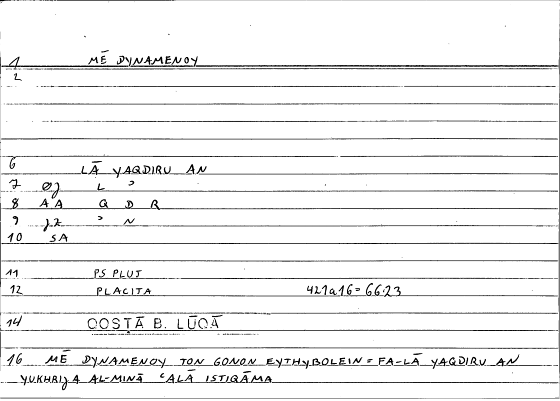 1 MĒ DYNAMENOY
2
6 LĀ YAQDIRU AN
7 ØJ L ʾ
8 AA Q D R
9 JZ ʾ N
10 SA
11 PS PLUT
12 PLACITA 421a16=66.23
14 QOSṬĀ B. LŪQĀ
16 MĒ DYNAMENOY TON GONON EYTHYBOLEIN = FA-LĀ YAQDIRU AN
YUKHRIJA AL-MINĀ ʿALĀ ISTIQĀMA